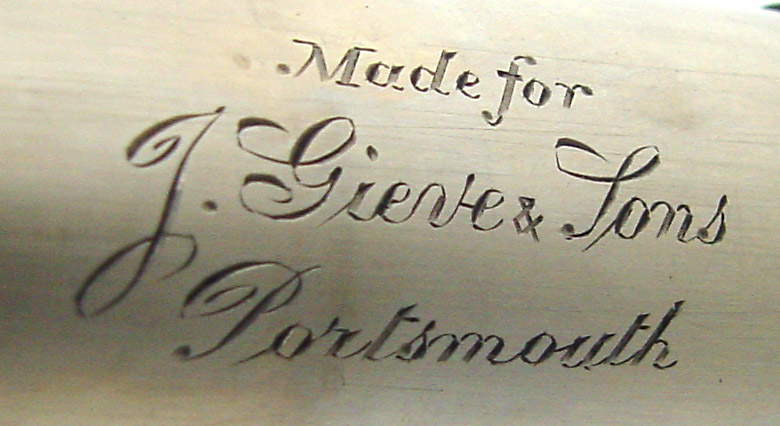 Made for
J. Gieve & Sons
Portsmouth